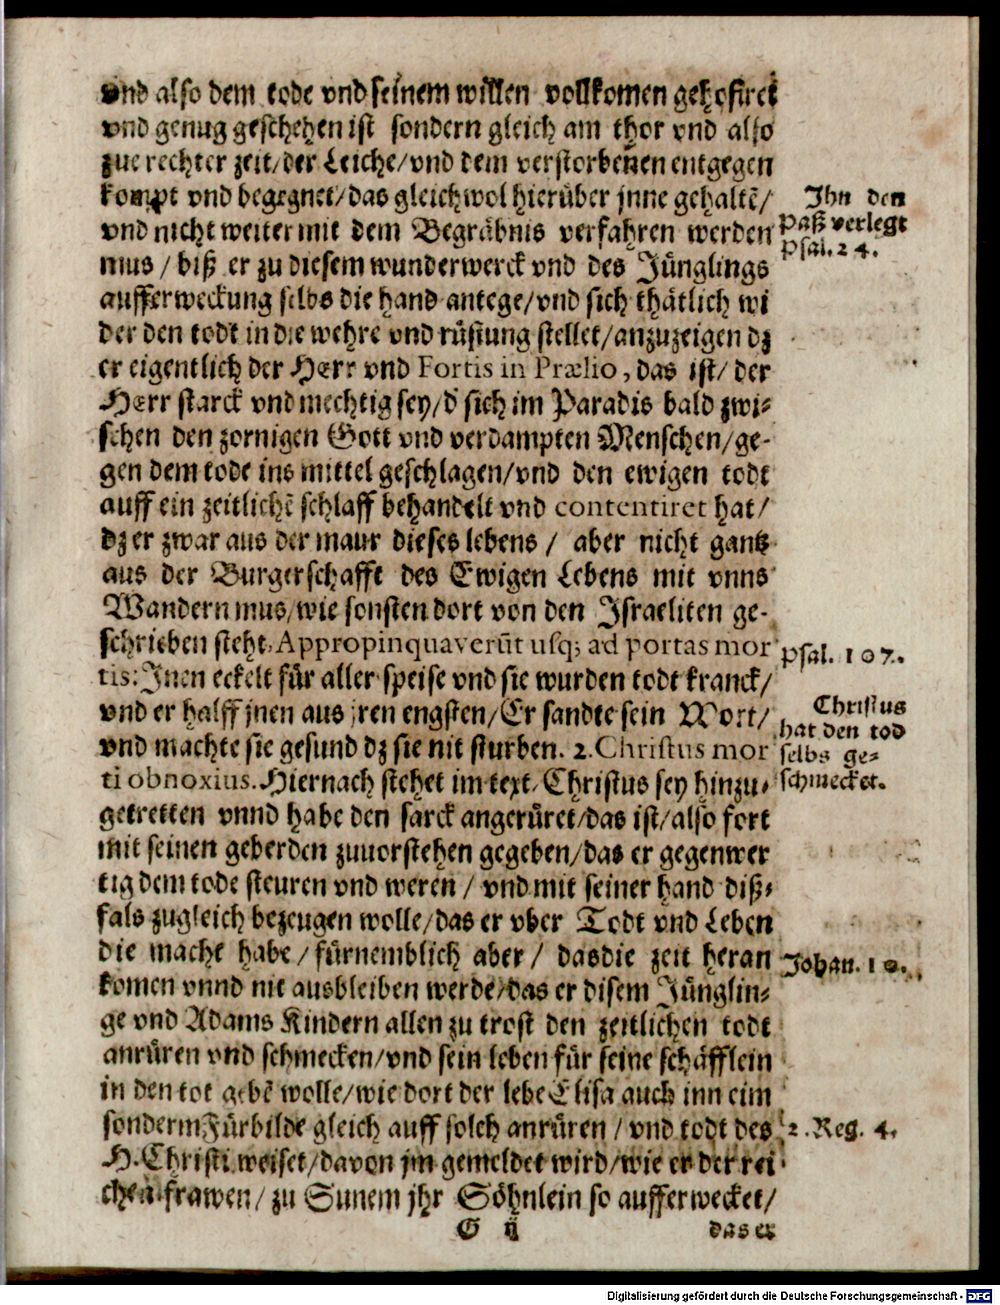 vnd also dem tode vnd seinem willen vollkomen gehofiret
vnd genug geschehen ist sondern gleich am thor vnd also
zue rechter zeit/der Leiche/vnd dem verstorbenen entgegen
kompt vnd begegnet/das gleichwol hierüber jnne gehaltẽ/
vnd nicht weiter mit dem Begräbnis verfahren werden
mus / biß er zu diesem wunderwerck vnd des Jünglings
aufferweckung selbs die hand antege/vnd sich thätlich wi
der den todt in die wehre vnd rüstung stellet/anzuzeigen dz
er eigentlich der Herr vnd Fortis in Prælio, das ist/ der
Herr starck vnd mechtig sey/d' sich im Paradis bald zwi-
schen den zornigen Gott vnd verdampten Menschen/ge-
gen dem tode ins mittel geschlagen/vnd den ewigen todt
auff ein zeitlichẽ schlaff behandelt vnd contentiret hat/
dz er zwar aus der maur dieses lebens / aber nicht gantz
aus der Burgerschafft des Ewigen Lebens mit vnns
Wandern mus/wie sonsten dort von den Israeliten ge-
schrieben steht, Appropinquaverũt usq; ad portas mor
tis: Inen eckelt für aller speise vnd sie wurden todt kranck/
vnd er halff jnen aus jren engsten/Er sandte sein Wort/
vnd machte sie gesund dz sie nit sturben. 2. Christus mor
ti obnoxius. Hiernach stehet im text/ Christus sey hinzu-
getretten vnnd habe den sarck angerüret/das ist/also fort
mit seinen geberden zuuorstehen gegeben/das er gegenwer
tig dem tode steuren vnd weren / vnd mit seiner hand diß-
fals zugleich bezeugen wolle/das er vber Todt vnd Leben
die macht habe / fürnemblich aber / das die zeit heran
komen vnnd nit ausbleiben werde/das er disem Jünglin-
ge vnd Adams Kindern allen zu trost den zeitlichen todt
anrüren vnd schmecken/vnd sein leben für seine schäfflein
in den tot gebẽ wolle/wie dort der lebe Elisa auch inn eim
sonderm Fürbilde gleich auff solch anrüren / vnd todt des
H. Christi weiset/davon jm gemeldet wird/wie er der rei
chen frawen/ zu Sunem jhr Söhnlein so aufferwecket/
G ij das er
Ihn den
Paß verlegt
Psal. 24.
Psal. 107.
Christus
hat den tod
selbs ge-
schmecket.
Johan. 10.
2. Reg. 4.
Digitalisierung gefördert durch die Deutsche Forschungsgemeinschaft - DFG